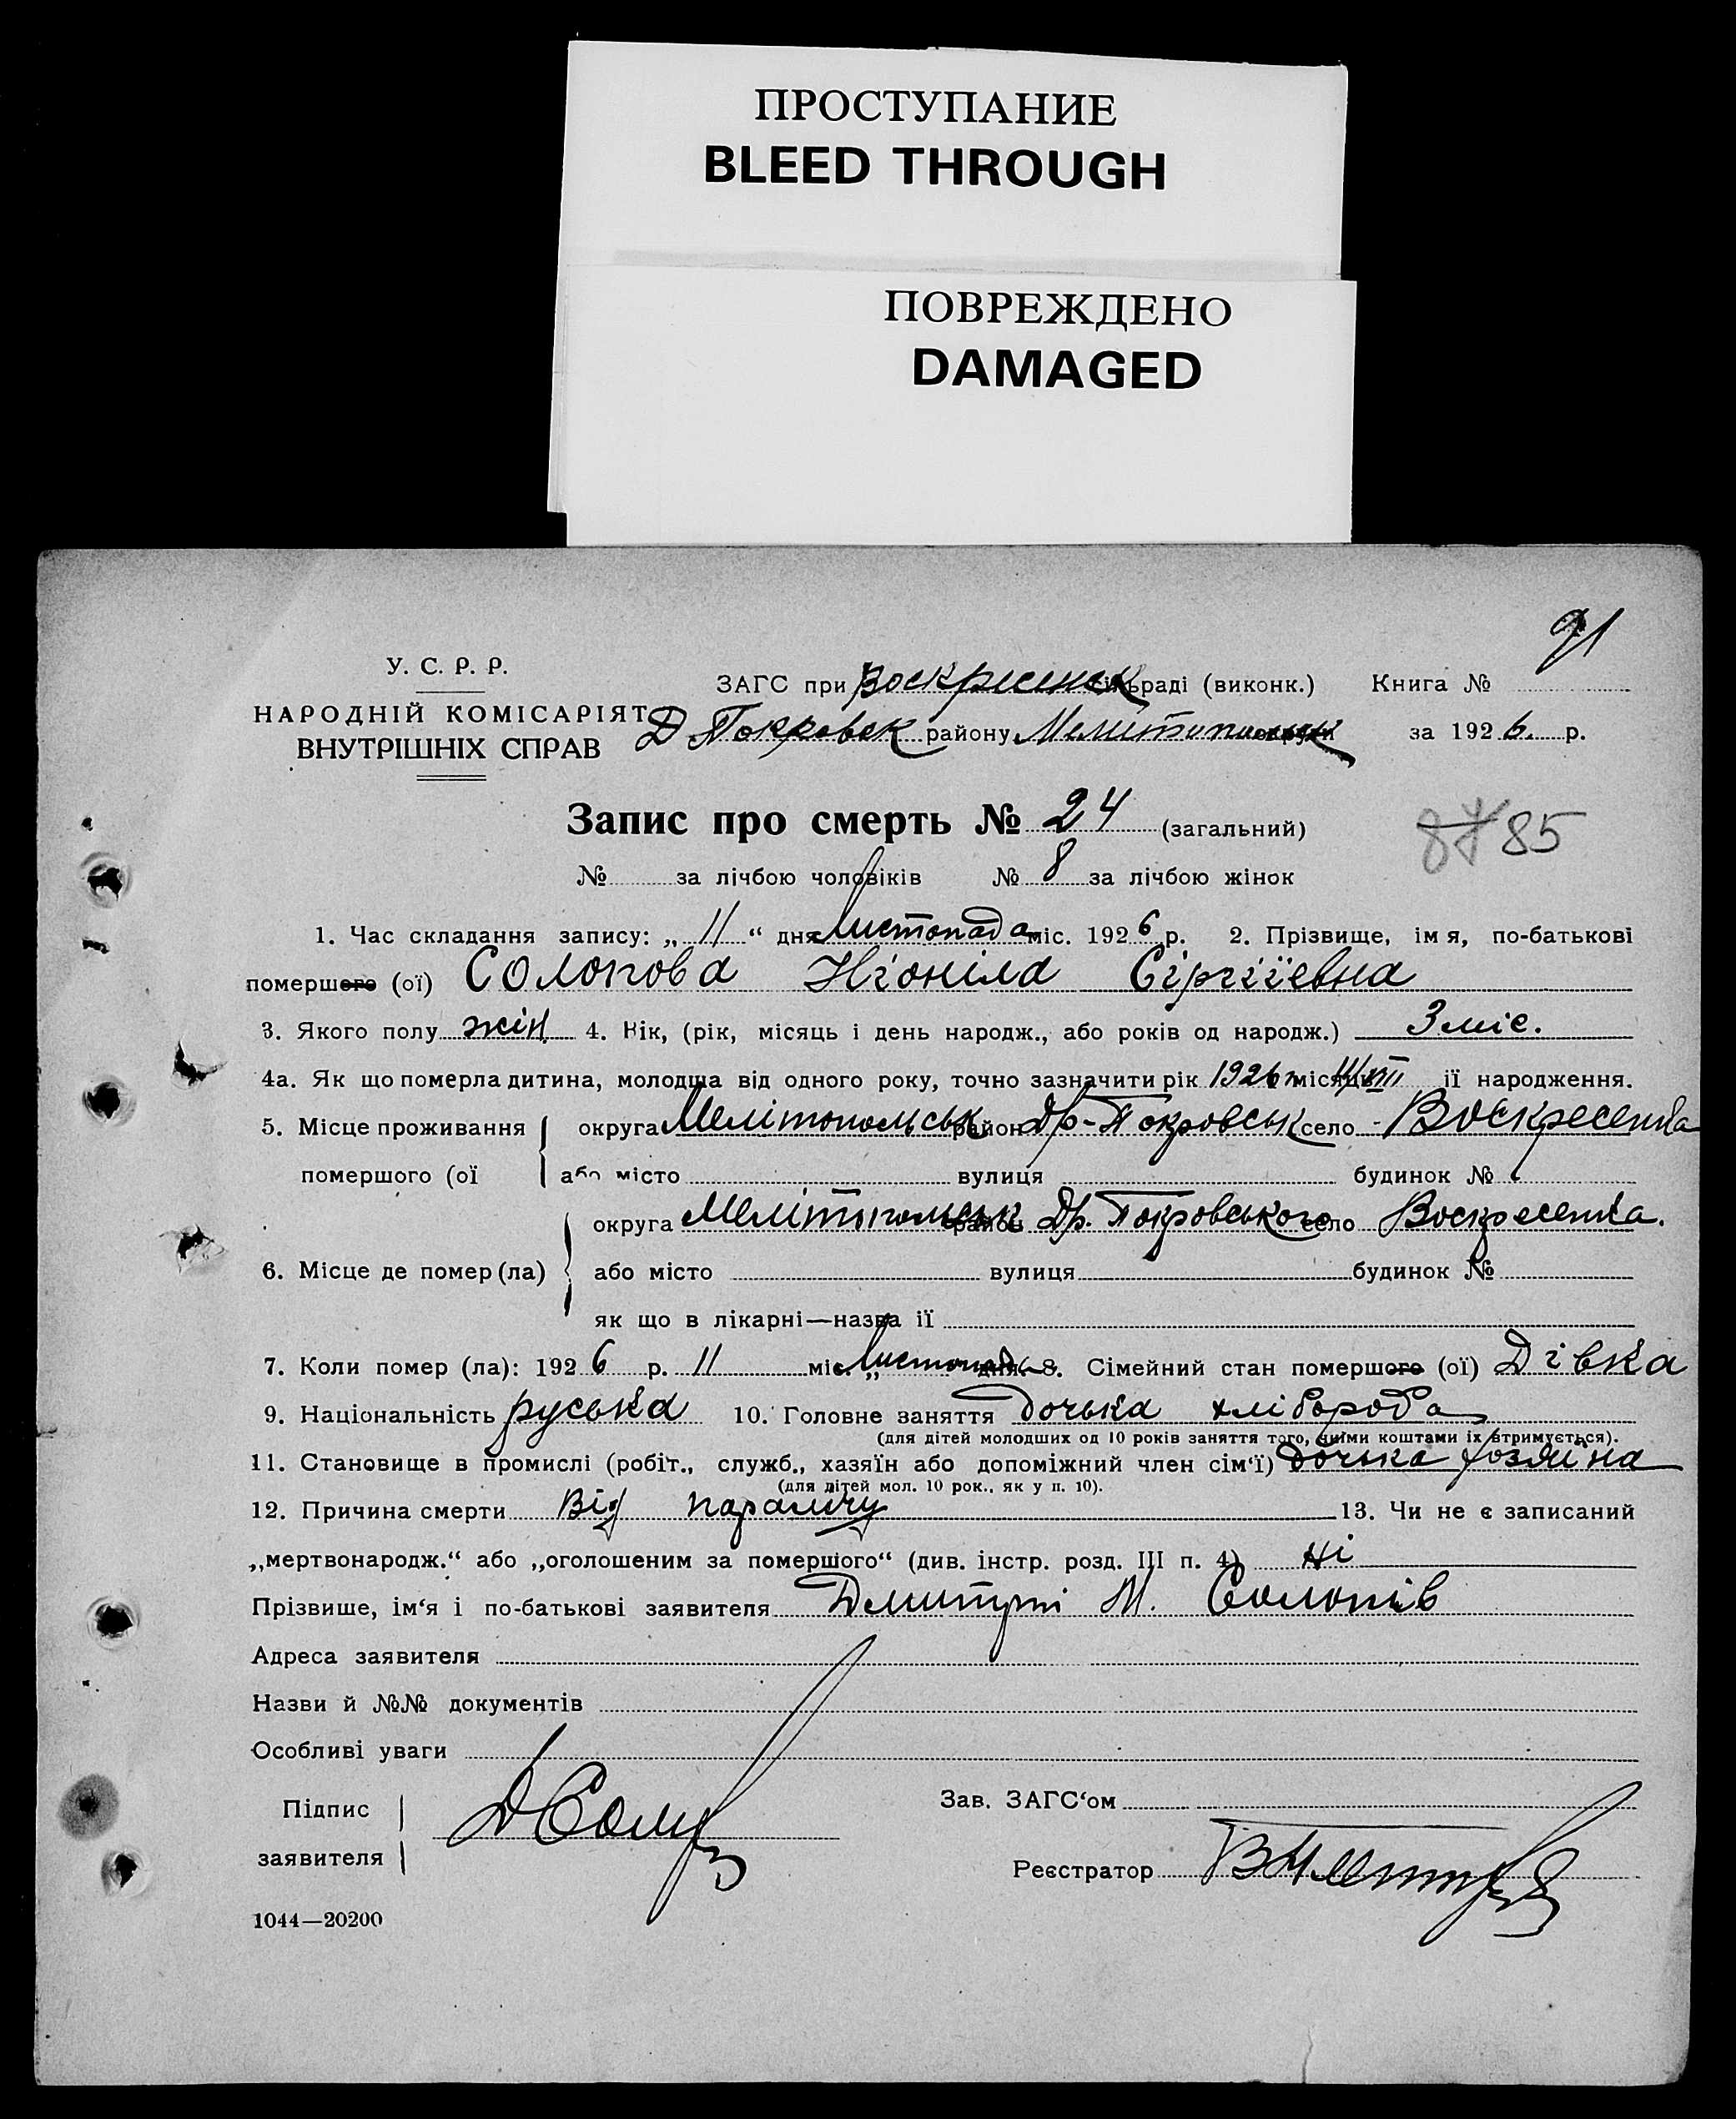 ПРОСТУПАНИЕ
BLEED THROUGH
ПОВРЕЖДЕНО
DAMAGED
91
У. С. Р. Р.
НАРОДНІЙ КОМІСАРІЯТ
ВНУТРІШНІХ СПРАВ
ЗАГС при Воскресенськ сільраді (виконк.) Книга №
Д Покровск району Мелитопольськ округи за 1926. р.
Запис про смерть № 24 (загальний)
87 85
№ за лічбою чоловіків № 8 за лічбою жінок
1. Час складання запису: „11“ дня Листопада міс. 1926 р. 2. Прізвище, імя, по-батькові
помершого (ої) Солопова Ніоніла Сіргіївна
3. Якого полу жін. 4. Вік, (рік, місяць і день народж., або років од народж.) 3 міс.
4а. Як що померла дитина, молодша від одного року, точно зазначити рік 1926 місяць VIII її народження.
5. Місце проживання округа Мелітопольськ район Др-Покровськ село Воскресенка
помершого (ої або місто вулиця будинок №
округа Мелітопольськ район Др. Покровського село Воскресенка.
6. Місце де помер (ла) або місто вулиця будинок №
як що в лікарні—назва її
7. Коли помер (ла): 1926 р. 11 міс. „Листопада дня. 8. Сімейний стан помершого (ої) Дівка
9. Національність руська 10. Головне заняття дочька хлібороба
(для дітей молодших од 10 років заняття того, чиїми коштами їх втримується).
11. Становище в промислі (робіт., служб., хазяїн або допоміжний член сім'ї) дочька хозяїна
(для дітей мол. 10 рок., як у п. 10).
12. Причина смерти Від паралічу 13. Чи не є записаний
„мертвонародж.“ або „оголошеним за помершого“ (див. інстр. розд. III п. 4) Ні
Прізвише, ім'я і по-батькові заявителя Дмитрі М. Солопів
Адреса заявителя
Назви й №№ документів
Особливі уваги
Підпис
заявителя
Зав. ЗАГС'ом
Реєстратор
1044—20200